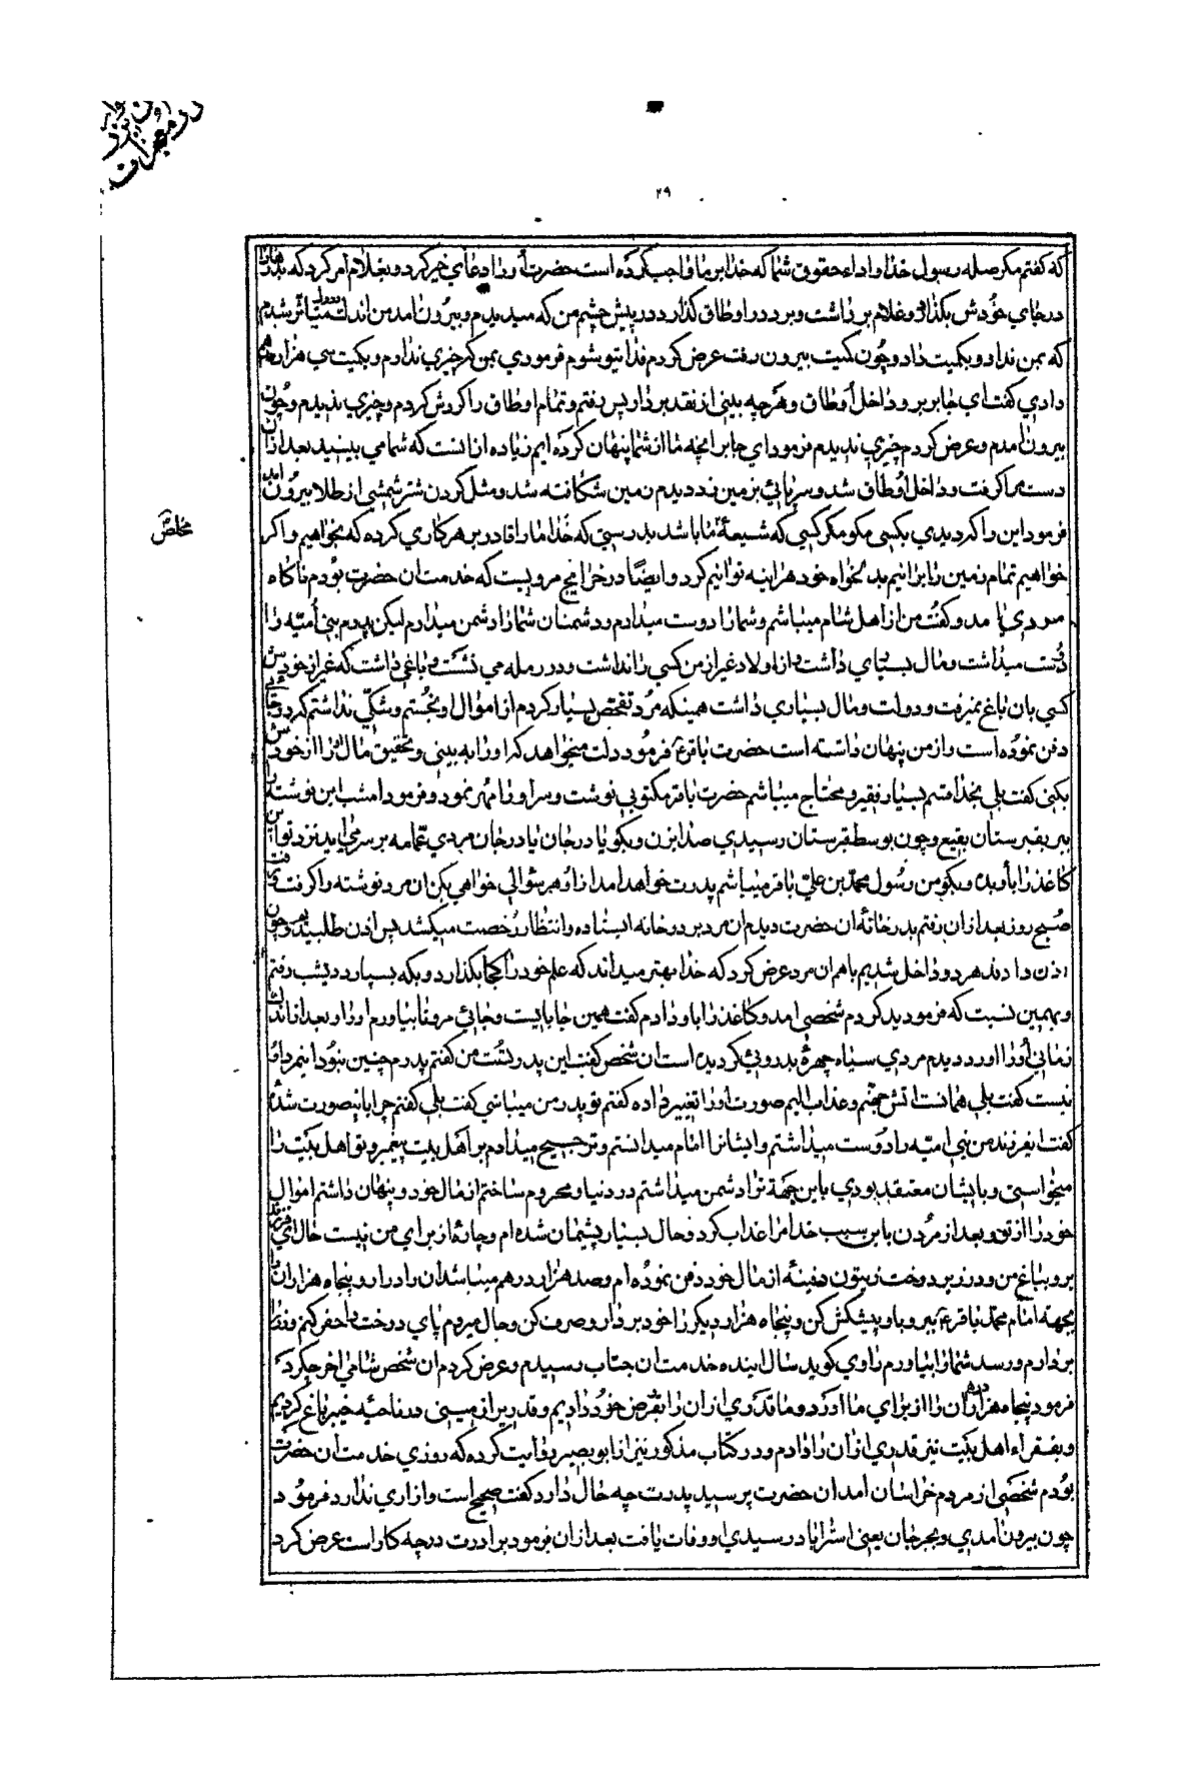 در معجزات
۲۹
که گفتم مکر صله رسول خدا و اداء حقوق شما که خدا بر ما واجب کرده است حضرت او را دعای خیر کرد و بغلام امر کرد که بدرها را
در جای خودش بکذار و غلام برداشت و برد در اوطاق کذارد در پیش چشم من که میدیدم و بیرون امد من اندک متاثر شدم
که بمن نداد و بکمیت داد و چون کمیت بیرون رفت عرض کردم فدایتو شوم فرمودی بمن که چیزی ندارم و بکمیت سی هزار درهم
دادی کفت ای جابر برو داخل اوطاق و هر چه بینی از نقد بردار پس رفتم و تمام اوطاق را کردش کردم و چیزی ندیدم و چون
بیرون امدم و عرض کردم چیزی ندیدم فرمود ای جابر انچه ما از شما پنهان کرده ایم زیاده از انست که شما می بینید بعد ازان
دست مرا کرفت و داخل اوطاق شد و سر پائی بزمین زد دیدم زمین شکافته شد و مثل کردن شتر شمشی از طلا بیرون امد
فرمود این را که دیدی بکسی مکو مکر کسی که شیعهٔ ما باشد بدرستی که خدا ما را قادر بر هر کاری کرده که بخواهیم و اکر
مخلص
خواهیم تمام زمین را برانیم بدلخواه خود هراینه توانیم کرد و ایضًا در خرایج مرویست که خدمت ان حضرت بودم ناکاه
مردی امد و کفت من از اهل شام میباشم و شما را دوست میدارم و دشمنان شما را دشمن میدارم لیکن پدرم بنی امیّه را
دوست میداشت و مال بسیاری داشت و از اولاد غیر از من کسی را نداشت و در رمله می نشست و باغی داشت که غیر از خودش
کسی بان باغ نمیرفت و دولت و مال بسیاری داشت همینکه مرد تفحص بسیار کردم از اموال او نجستم و شکّی نداشتم که در جائی
دفن نموده است و از من پنهان داشته است حضرت باقر ع فرمود دلت میخواهد که او را به بینی و تحقیق مال را از خودش
بکنی کفت بلی بخدا قسم بسیار فقیر و محتاج میباشم حضرت باقر مکتوبی نوشت و سر او را مهر نمود و فرمود امشب این نوشته را
ببر بقبرستان بقیع و چون بوسط قبرستان رسیدی صدا بزن و بکو یا درجان یا درجان مردی عمامه بر سر می‌اید نزد تو این
کاغذ را باو بده و بکو من رسول محمّد بن علیّ باقر میباشم پدرت خواهد امد از او هر سؤالی خواهی بکن ان مرد نوشته را کرفت و رفت
صبح روز بعد ازان رفتم بدر خانهٔ ان حضرت دیدم ان مرد بر در خانه ایستاده و انتظار رخصت میکشد پس اذن طلبید و چون
اذن دادند هر دو داخل شدیم باهم ان مرد عرض کرد که خدا بهتر میداند که علم خود را کجا بکذارد و بکه بسپارد دیشب رفتم
و بهمین نسبت که فرمودید کردم شخصی امد و کاغذ را باو دادم کفت همین جا بایست و جائی مرو تا بیاورم او را و بعد از اندک
زمانی او را اورد دیدم مردی سیاه چهرهٔ بدروئی کردیده است ان شخص کفت این پدر تست من کفتم پدرم چنین نبود این پدرم
نیست کفت بلی همانست اتش جهنم و عذاب الیم صورت او را تغییر داده کفتم تو پدر من میباشی کفت بلی کفتم چرا باینصورت شدهٔ
کفت ایفرزند من بنی امیّه را دوست میداشتم و ایشانرا امام میدانستم و ترجیح میدادم بر اهل بیت پیغمبر و تو اهل بیت را
میخواستی و بایشان معتقد بودی باین جهة ترا دشمن میداشتم در دنیا و محروم ساختم از مال خود و پنهان داشتم اموال
خود را از تو و بعد از مردن باین سبب خدا مرا عذاب کرد و حال بسیار پشیمان شده ام و چارهٔ از برای من نیست حال ای فرزند
برو بباغ من و در زیر درخت زیتون دفینهٔ از مال خود دفن نموده ام و صد هزار درهم میباشد ان را درار و پنجاه هزار ان را
بجهة امام محمّد باقر ع ببر و باو پیشکش کن و پنجاه هزار دیکر را خود بردار و صرف کن و حال میروم پای درخت را حفر کنم و نقد
بردارم و رسد شما را بیاورم راوی کوید سال اینده خدمت ان جناب رسیدم و عرض کردم ان شخص شامی اخر چکرد
فرمود پنجاه هزار درهم ان را از برای ما اورد و ما قدری از ان را بقرض خود دادیم و قدری از زمینی در ناحیهٔ خیبر باغ کردیم
و بفقراء اهل بیت نیز قدری از ان را دادم و در کتاب مذکور نیز از ابو بصیر روایت کرده که روزی خدمت ان حضرت
بودم شخصی از مردم خراسان امد ان حضرت پرسید پدرت چه حال دارد کفت صحیح است و ازاری ندارد فرمود
چون بیرون امدی و بجرجان یعنی استراباد رسیدی او وفات یافت بعد ازان فرمود برادرت در چه کار است عرض کرد